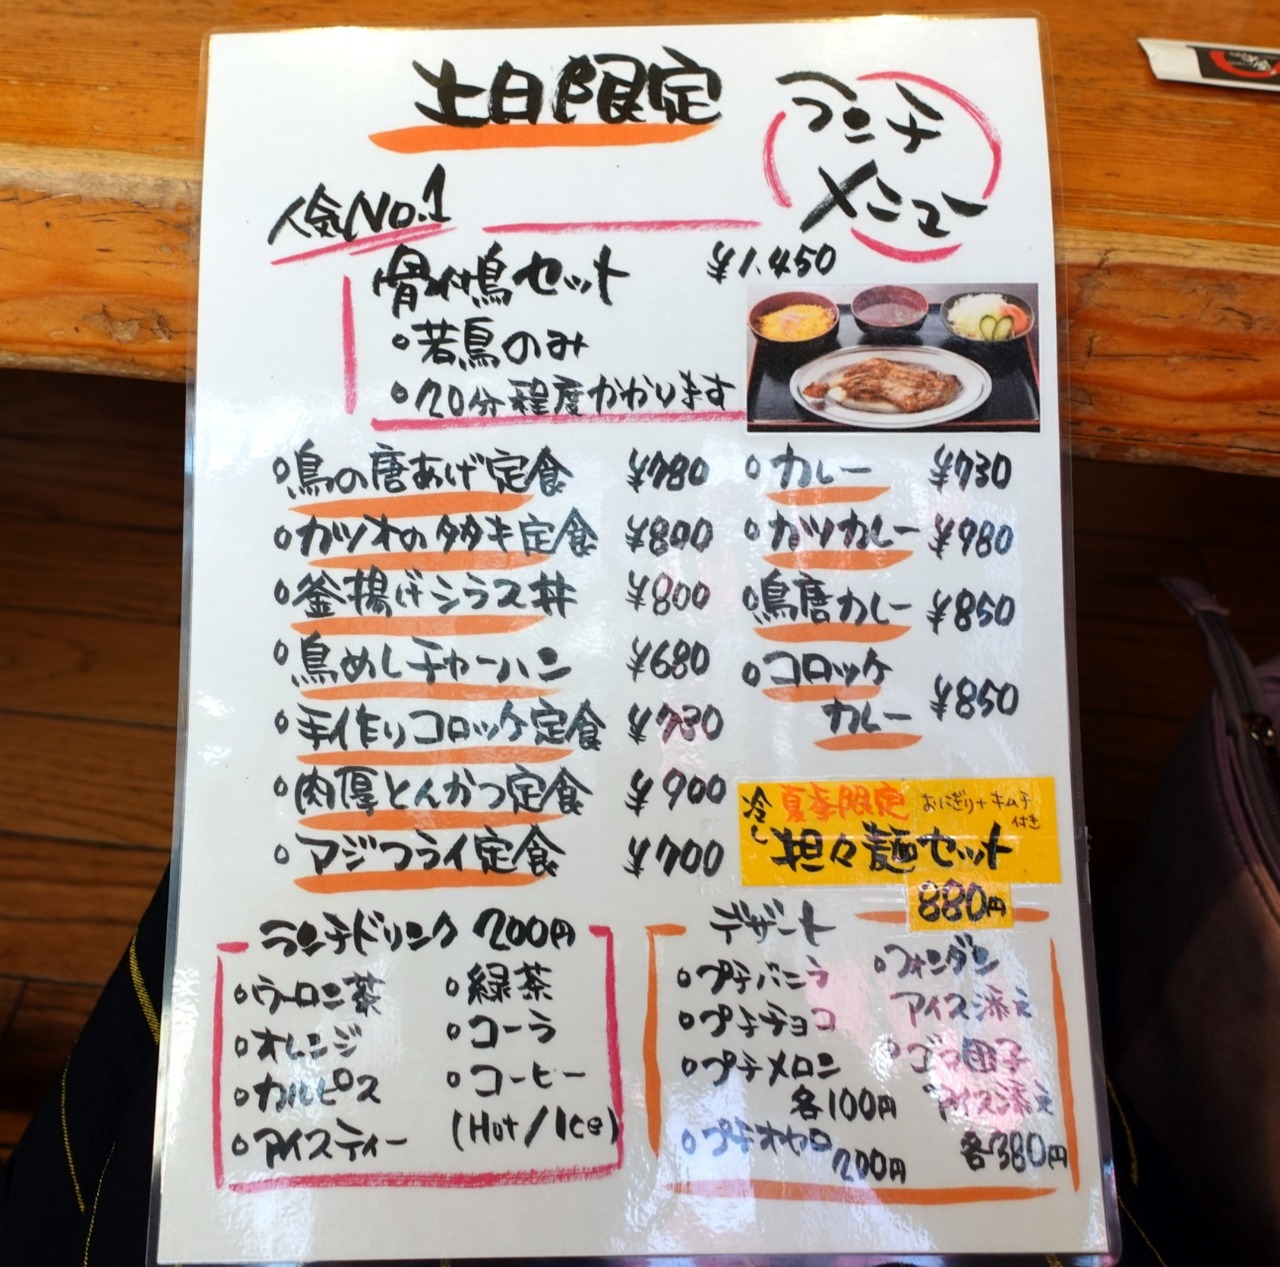 土日限定
ランチ
メニュー
人気No.1
骨付鳥セット ¥1,450
・若鳥のみ
・20分程度かかります
・鳥の唐あげ定食 ¥780
・カツオのタタキ定食 ¥800
・釜揚げシラス丼 ¥800
・鳥めしチャーハン ¥680
・手作りコロッケ定食 ¥730
・肉厚とんかつ定食 ¥900
・アジフライ定食 ¥700
・カレー ¥730
・カツカレー ¥980
・鳥唐カレー ¥850
・コロッケ
カレー ¥850
夏季限定 おにぎり+キムチ
付き
冷し 担々麺セット
880円
ランチドリンク 200円
・ウーロン茶
・オレンジ
・カルピス
・アイスティー
・緑茶
・コーラ
・コーヒー
(Hot/Ice)
デザート
・プチバニラ
・プチチョコ
・プチメロン
各100円
・プチオヤロ
200円
・フォンダン
アイス添え
・ゴマ団子
アイス添え
各380円